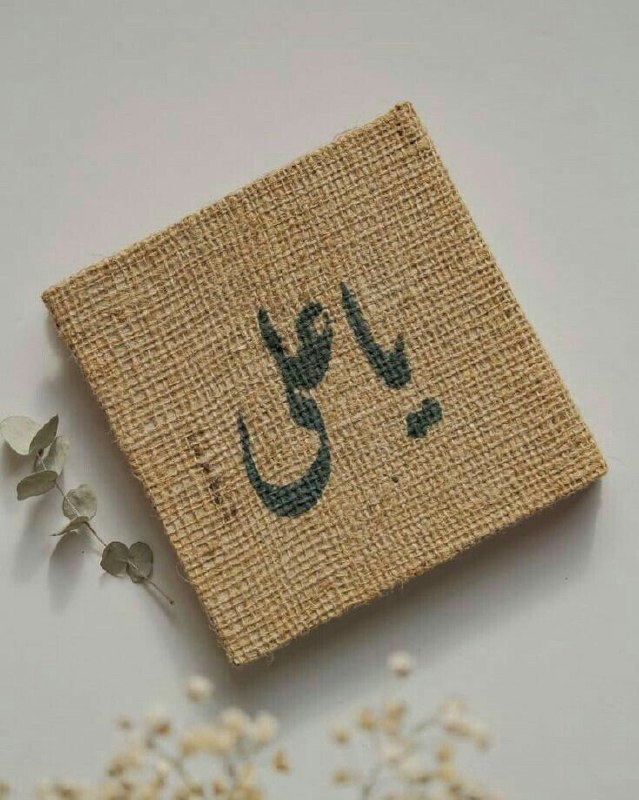 یا علی